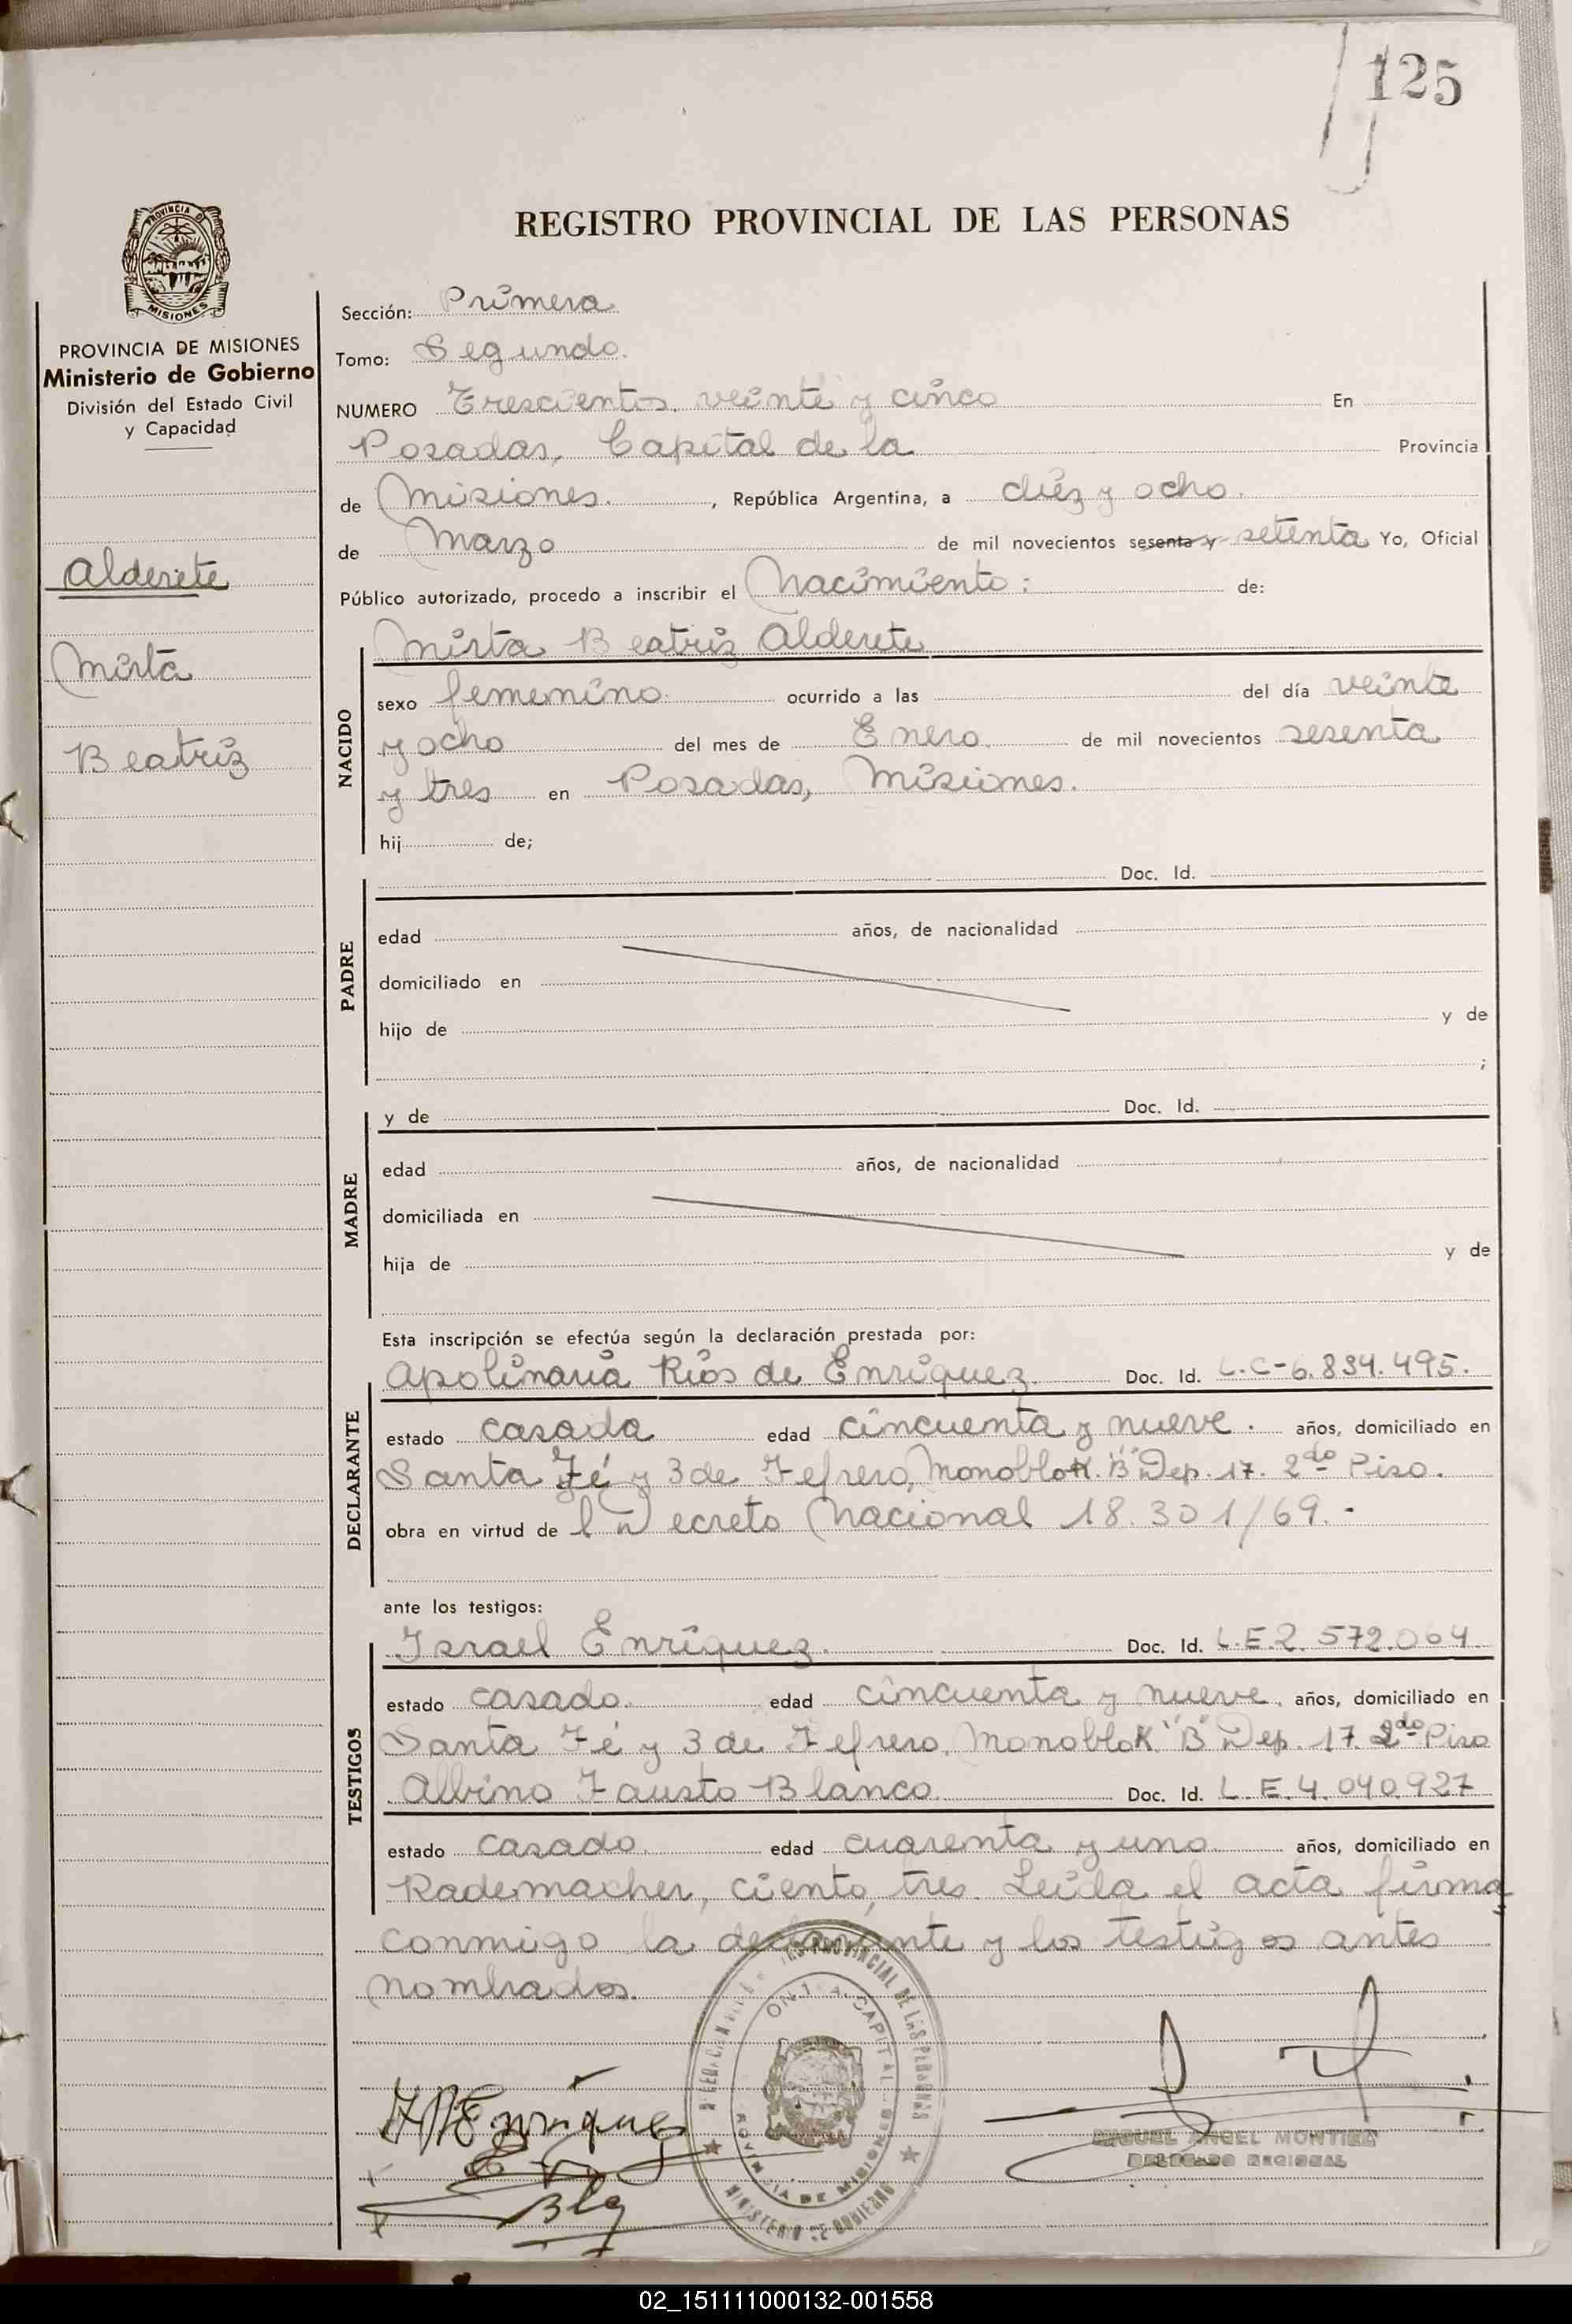 125
REGISTRO PROVINCIAL DE LAS PERSONAS
PROVINCIA DE MISIONES
PROVINCIA DE MISIONES
Ministerio de Gobierno
División del Estado Civil
y Capacidad
Alderete
Mirta
Beatriz
Sección: Primera
Tomo: Segundo.
NUMERO Trescientos veinte y cinco En
Posadas, Capital de la Provincia
de Misiones. , República Argentina, a diéz y ocho.
de Marzo de mil novecientos sesenta y setenta Yo, Oficial
Público autorizado, procedo a inscribir el Nacimiento: de:
NACIDO
Mirta Beatriz Alderete
sexo femenino ocurrido a las del día veinte
y ocho del mes de Enero de mil novecientos sesenta
y tres en Posadas, Misiones.
hij de;
PADRE
Doc. Id.
edad años, de nacionalidad
domiciliado en
hijo de y de
;
MADRE
y de Doc. Id.
edad años, de nacionalidad
domiciliada en
hija de y de
Esta inscripción se efectúa según la declaración prestada por:
DECLARANTE
Apolinaria Rios de Enriquez Doc. Id. L.C-6.834.495.
estado casada edad cincuenta y nueve. años, domiciliado en
Santa Fé y 3 de Fefrero, Monoblok. "B" Dep. 17. 2do Piso.
obra en virtud de l Decreto Nacional 18.301/69.-
ante los testigos:
TESTIGOS
Israel Enriquez. Doc. Id. L.E.2.572.064
estado casado. edad cincuenta y nueve, años, domiciliado en
Santa Fé y 3 de Fefrero, Monoblok "B" Dep. 17. 2do Piso
Albino Fausto Blanco. Doc. Id. L.E.4.040.927
estado casado. edad cuarenta y uno años, domiciliado en
Rademacher, ciento, tres. Leida el acta firma
conmigo la declarante y los testigos antes
nombrados.
PROVINCIAL DE LAS PERSONAS
CAPITAL
DE MISIONES
MINISTERIO DE GOBIERNO
Enriquez
MIGUEL ANGEL MONTIEL
DELEGADO REGIONAL
02_151111000132-001558